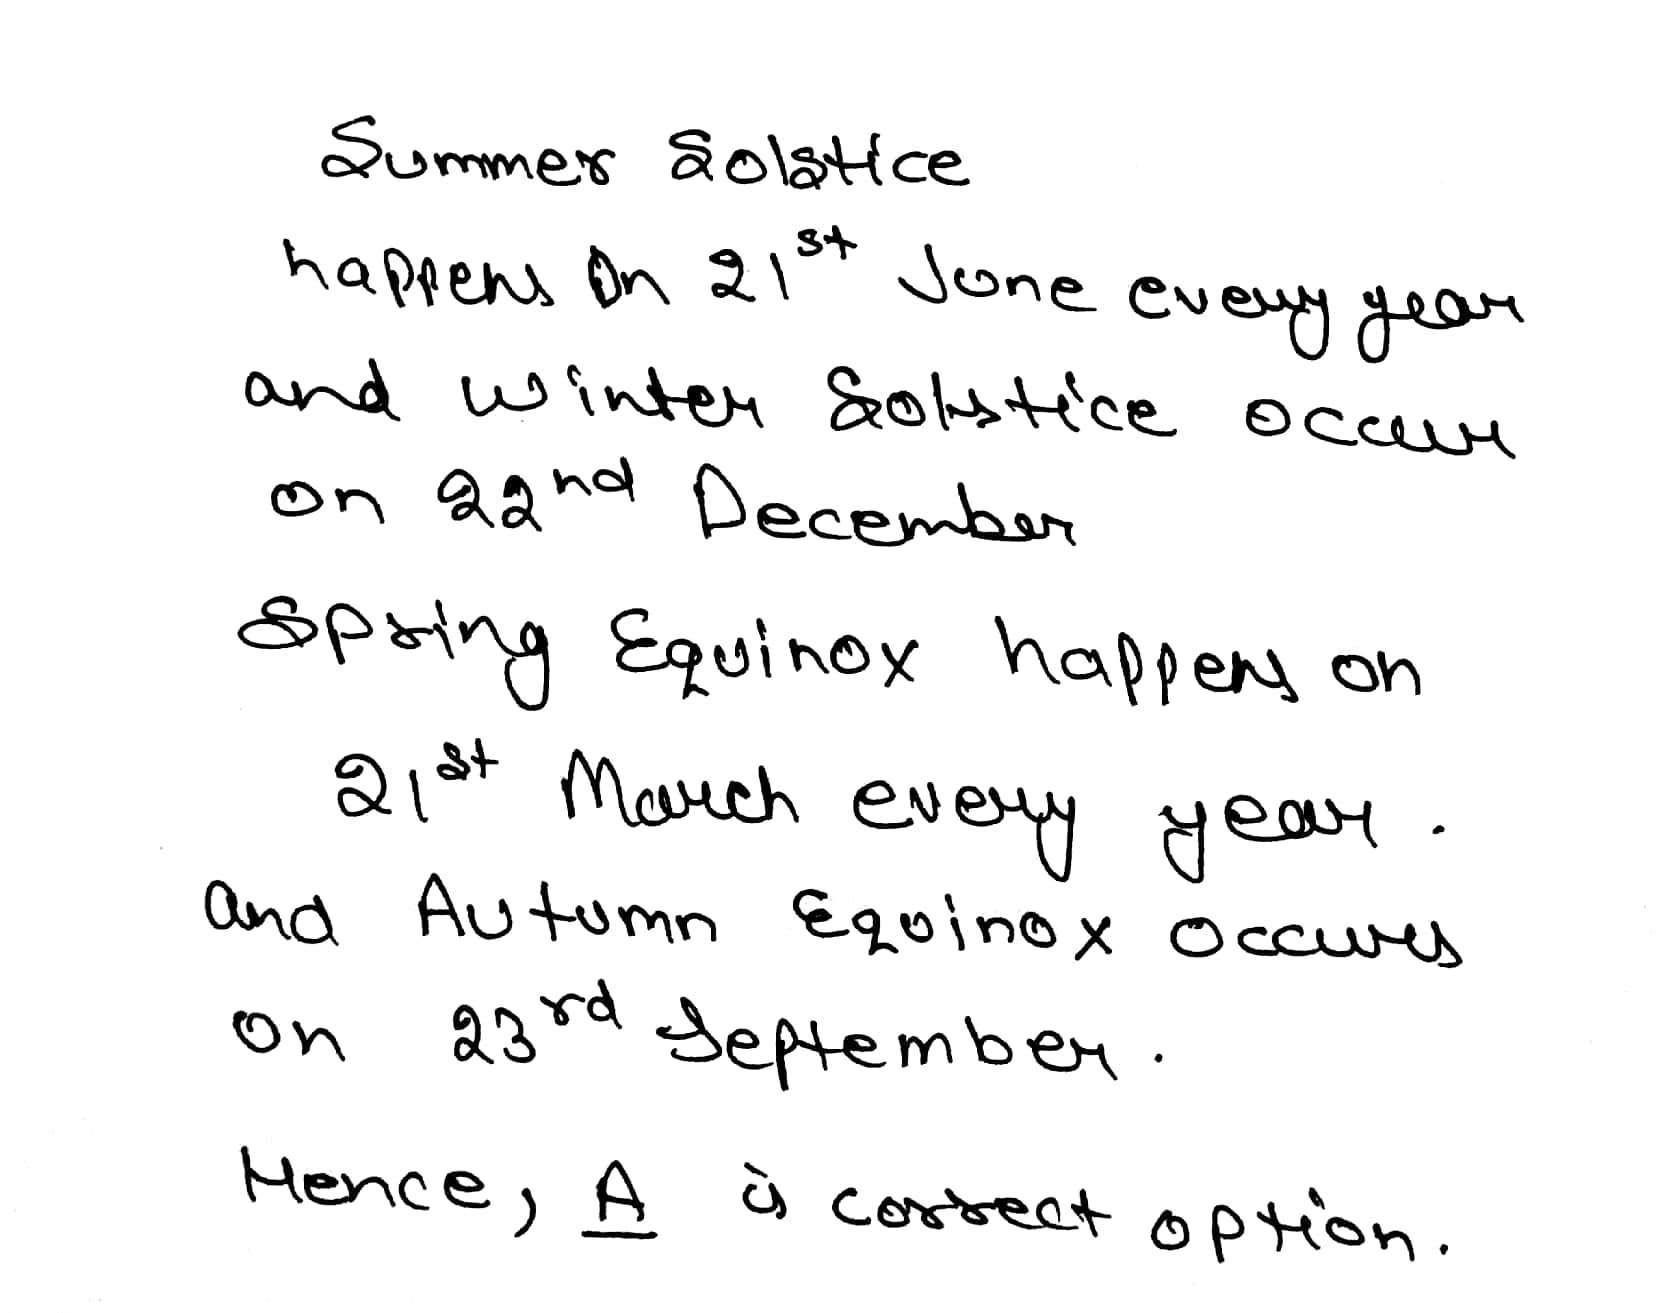 Summer Solstice
happens On 21st June every year
and winter Solstice occur
on 22nd December
Spring Equinox happens on
21st March every year.
and Autumn Equinox occures
on 23rd September.
Hence, A is correct option.